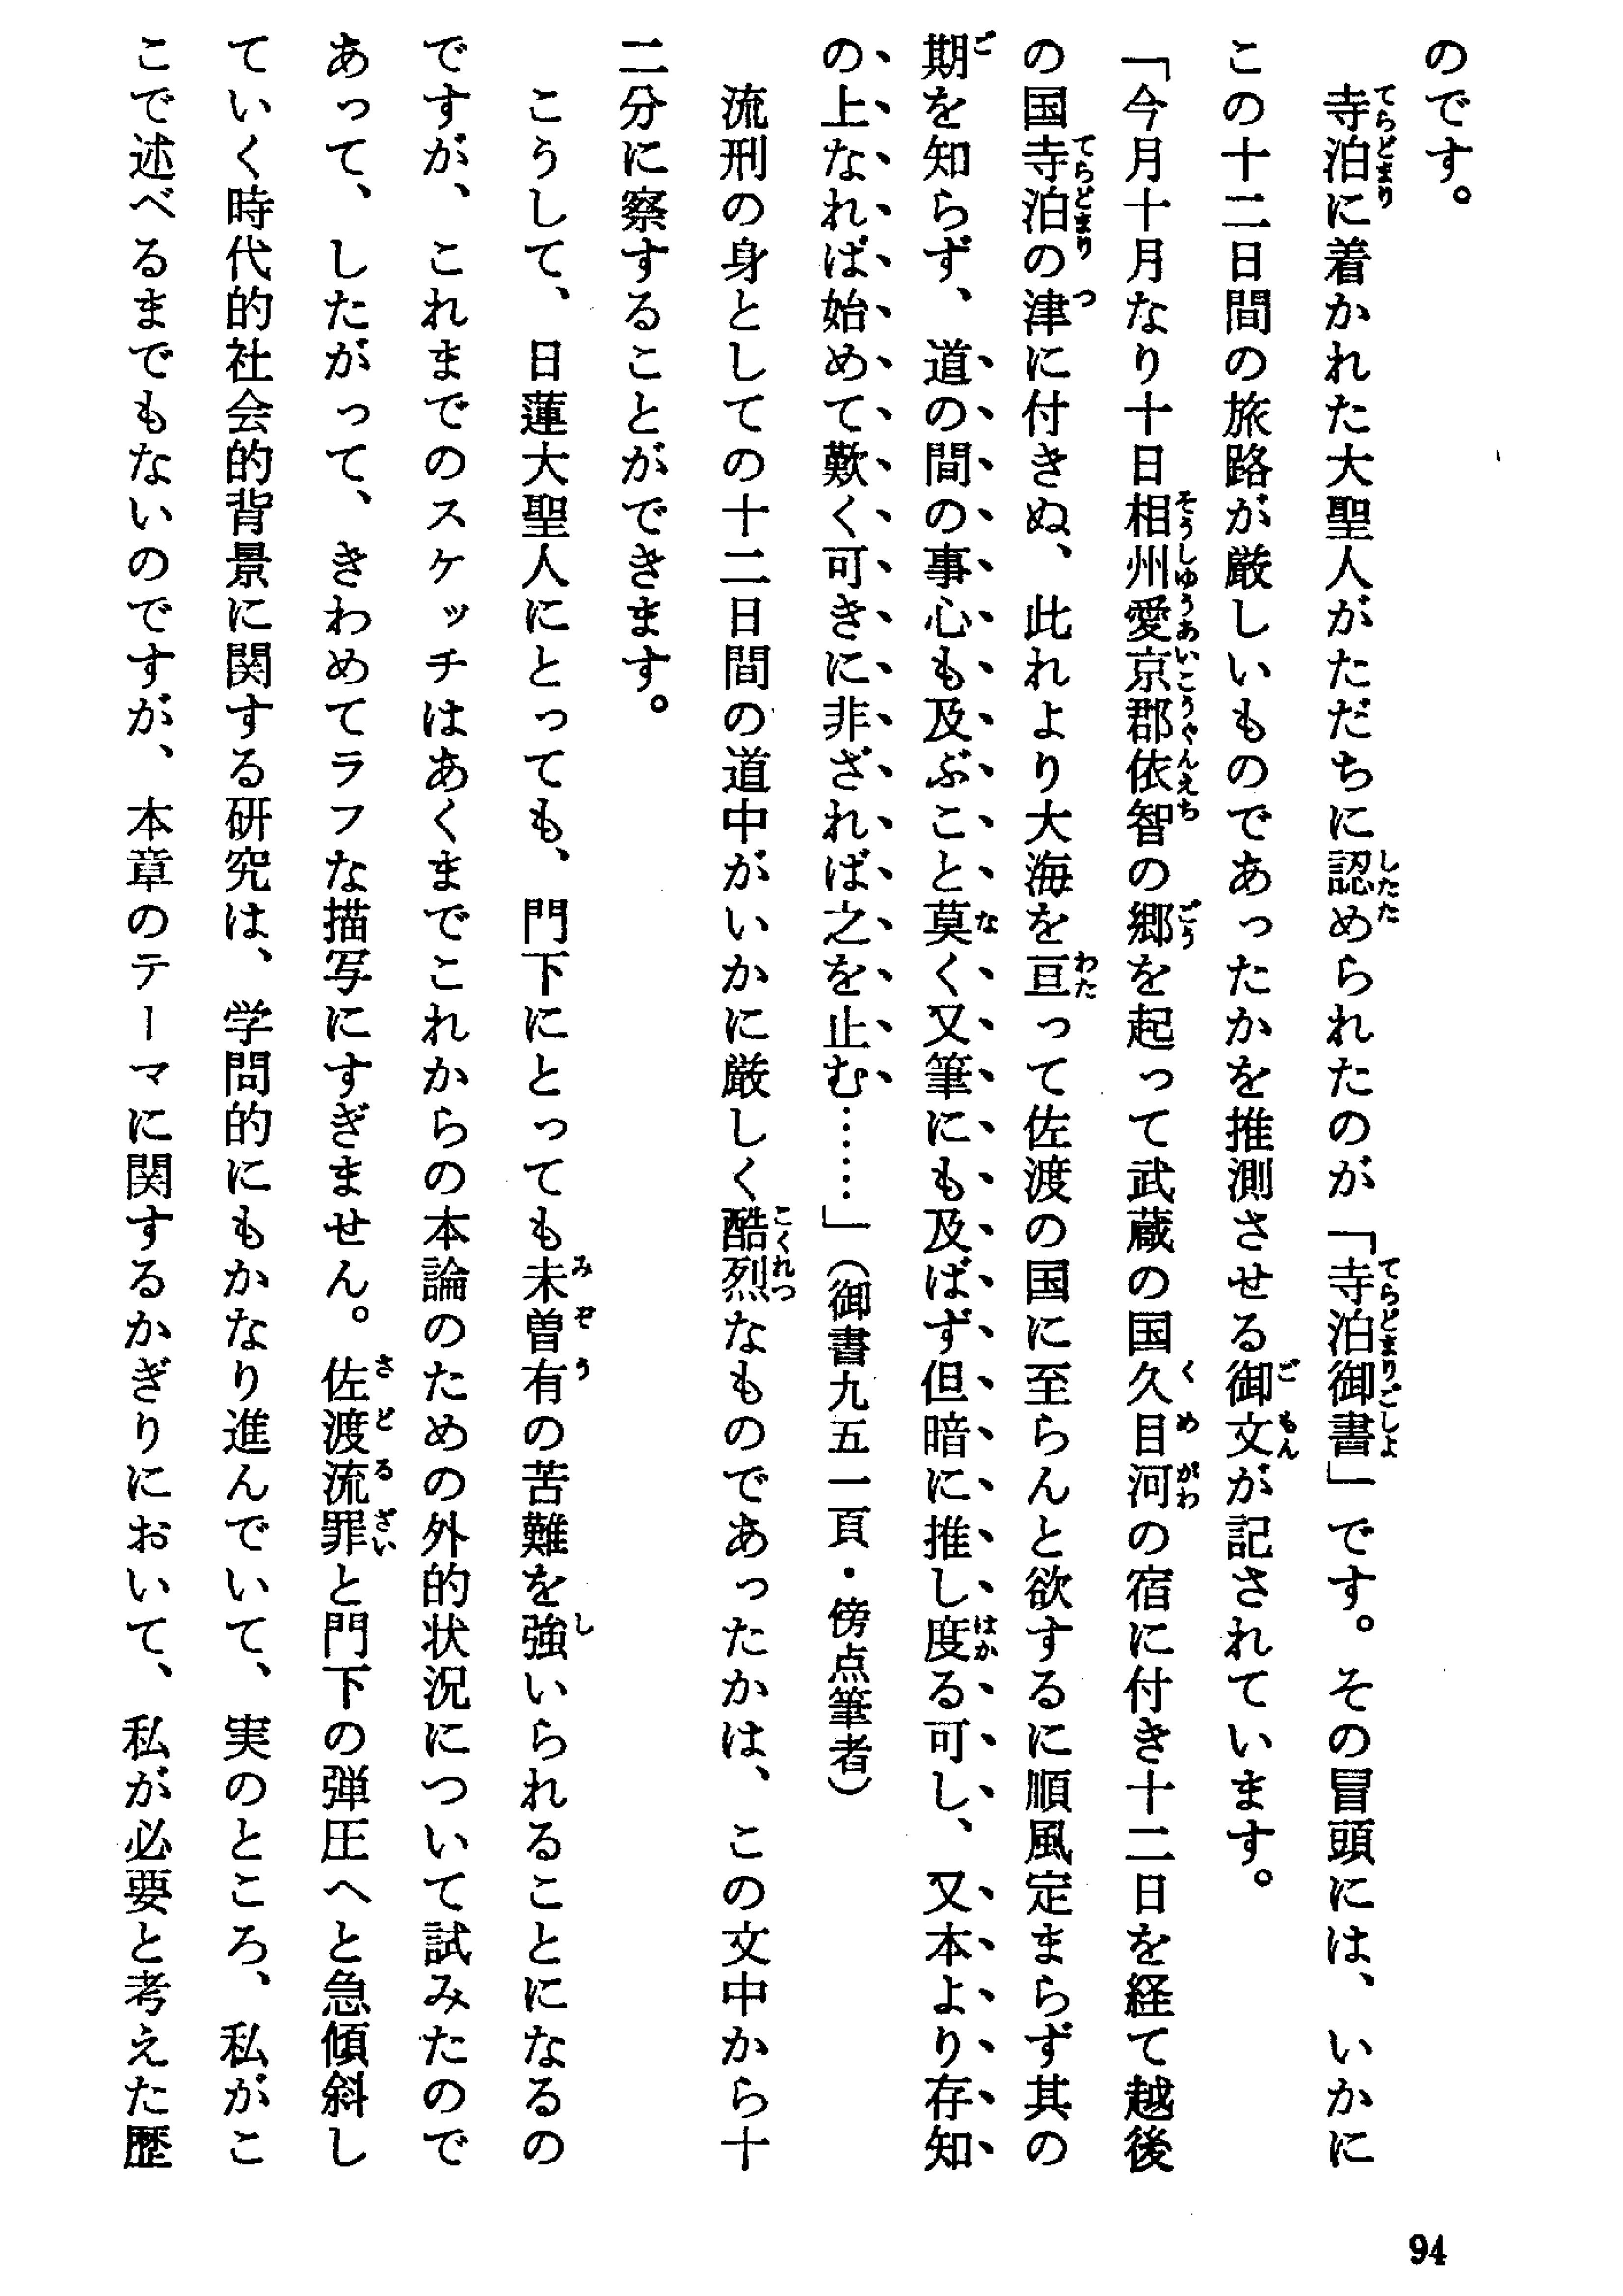 のです。
寺泊に着かれた大聖人がただちに認められたのが「寺泊御書」です。その冒頭には、いかに
この十二日間の旅路が厳しいものであったかを推測させる御文が記されています。
「今月十月なり十日相州愛京郡依智の郷を起って武蔵の国久目河の宿に付き十二日を経て越後
の国寺泊の津に付きぬ、此れより大海を亘って佐渡の国に至らんと欲するに順風定まらず其の
期を知らず、道の間の事心も及ぶこと莫く又筆にも及ばず但暗に推し度る可し、又本より存知
の上なれば始めて歎く可きに非ざれば之を止む……」（御書九五一頁・傍点筆者）
流刑の身としての十二日間の道中がいかに厳しく酷烈なものであったかは、この文中から十
二分に察することができます。
こうして、日蓮大聖人にとっても、門下にとっても未曽有の苦難を強いられることになるの
ですが、これまでのスケッチはあくまでこれからの本論のための外的状況について試みたので
あって、したがって、きわめてラフな描写にすぎません。佐渡流罪と門下の弾圧へと急傾斜し
ていく時代的社会的背景に関する研究は、学問的にもかなり進んでいて、実のところ、私がこ
こで述べるまでもないのですが、本章のテーマに関するかぎりにおいて、私が必要と考えた歴
94